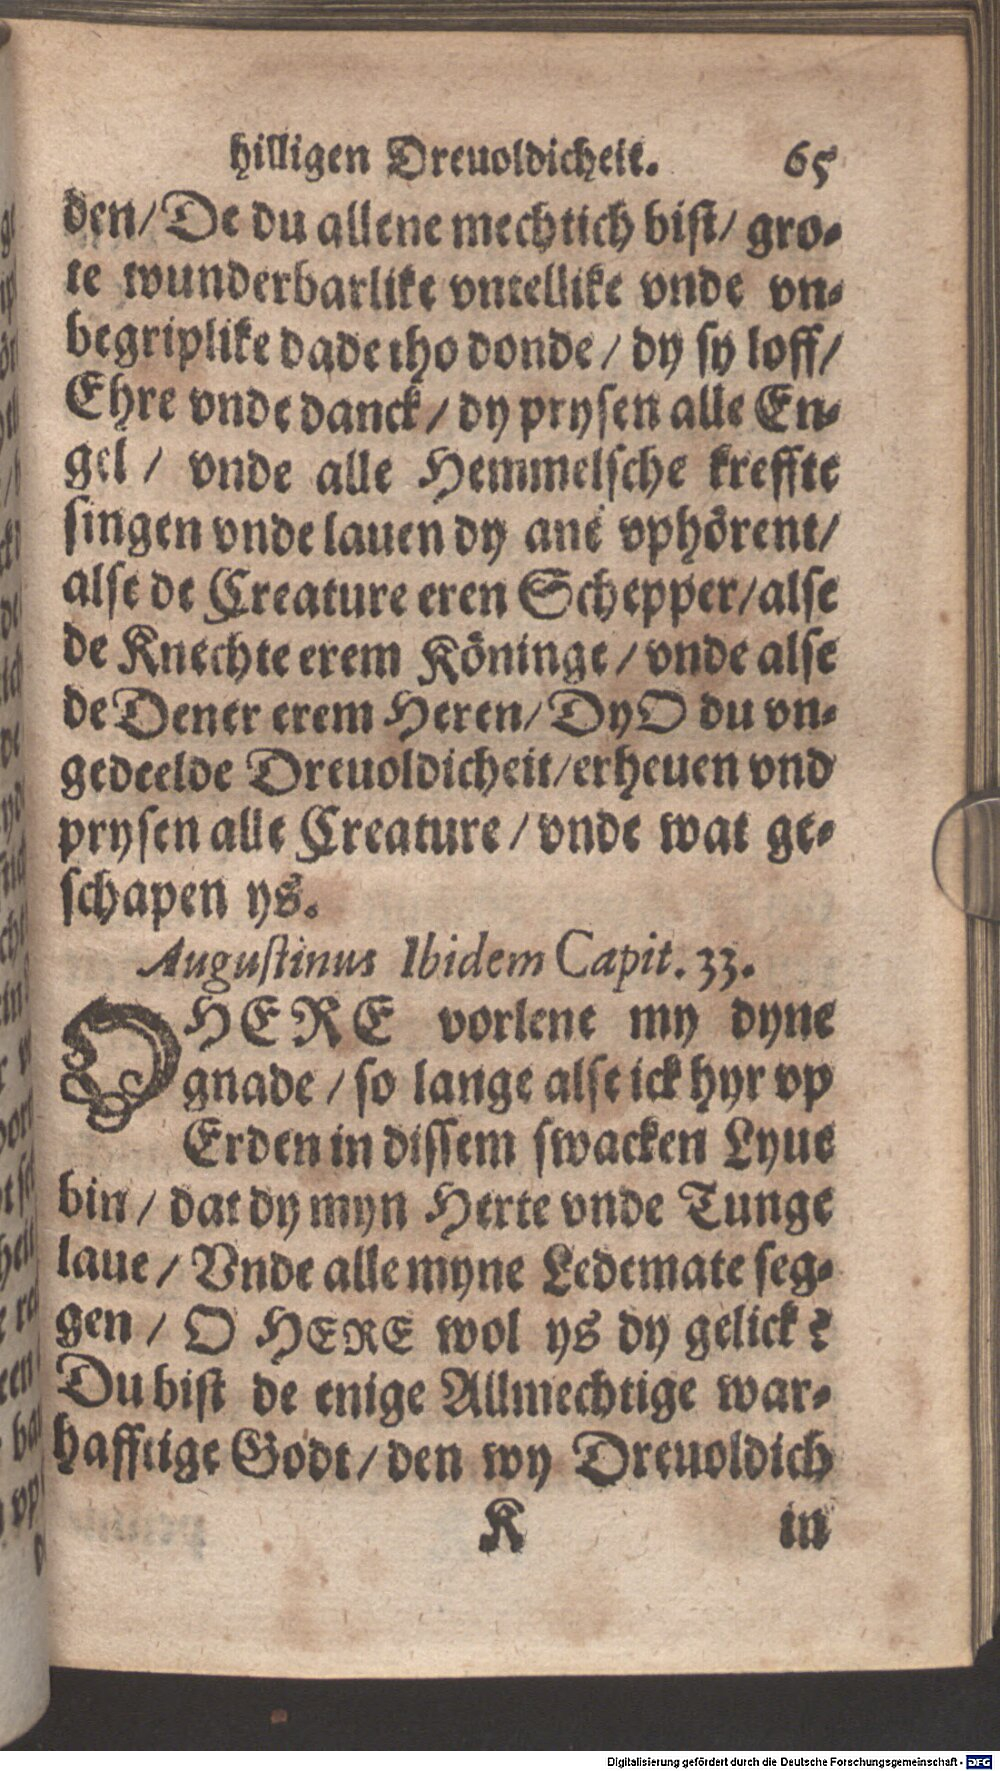 hilligen Dreuoldicheit. 65
den/ De du allene mechtich bist/ gro-
te wunderbarlike vntellike vnde vn-
begriplike dade tho donde / dy sy loff/
Ehre vnde danck / dy prysen alle En-
gel / vnde alle Hemmelsche kreffte
singen vnde lauen dy ane vphörent/
alse de Creature eren Schepper/alse
de Knechte erem Köninge / vnde alse
de Dener erem Heren/ Dy O du vn-
gedeelde Dreuoldicheit/erheuen vnd
prysen alle Creature / vnde wat ge-
schapen ys.
Augustinus Ibidem Capit. 33.
O HERE vorlene my dyne
gnade / so lange alse ick hyr vp
Erden in dissem swacken Lyue
bin / dat dy myn Herte vnde Tunge
laue / Vnde alle myne Ledemate seg-
gen / O HERE wol ys dy gelick?
Du bist de enige Allmechtige war-
hafftige Godt/ den wy Dreuoldich
K in
Digitalisierung gefördert durch die Deutsche Forschungsgemeinschaft - DFG